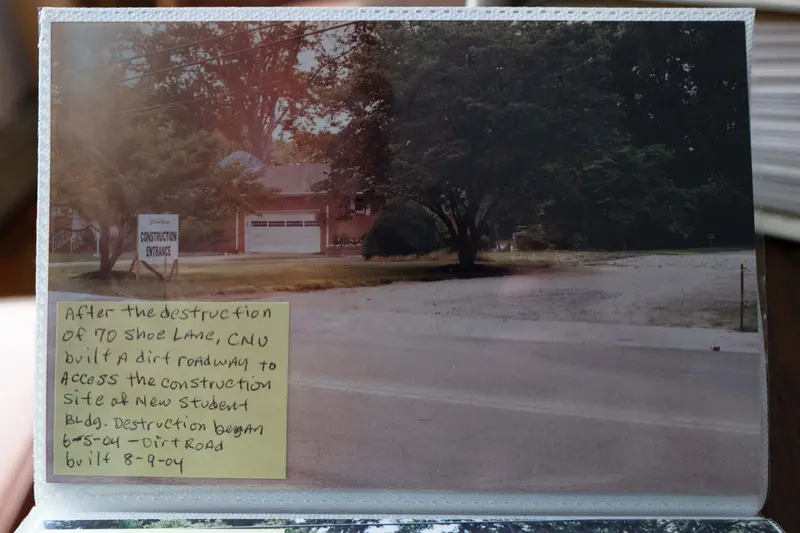 CONSTRUCTION
ENTRANCE
After the destruction
of 70 Shoe Lane, CNU
built A dirt roadway to
Access the construction
site of New Student
Bldg. Destruction began
6-5-04 - Dirt Road
built 8-9-04